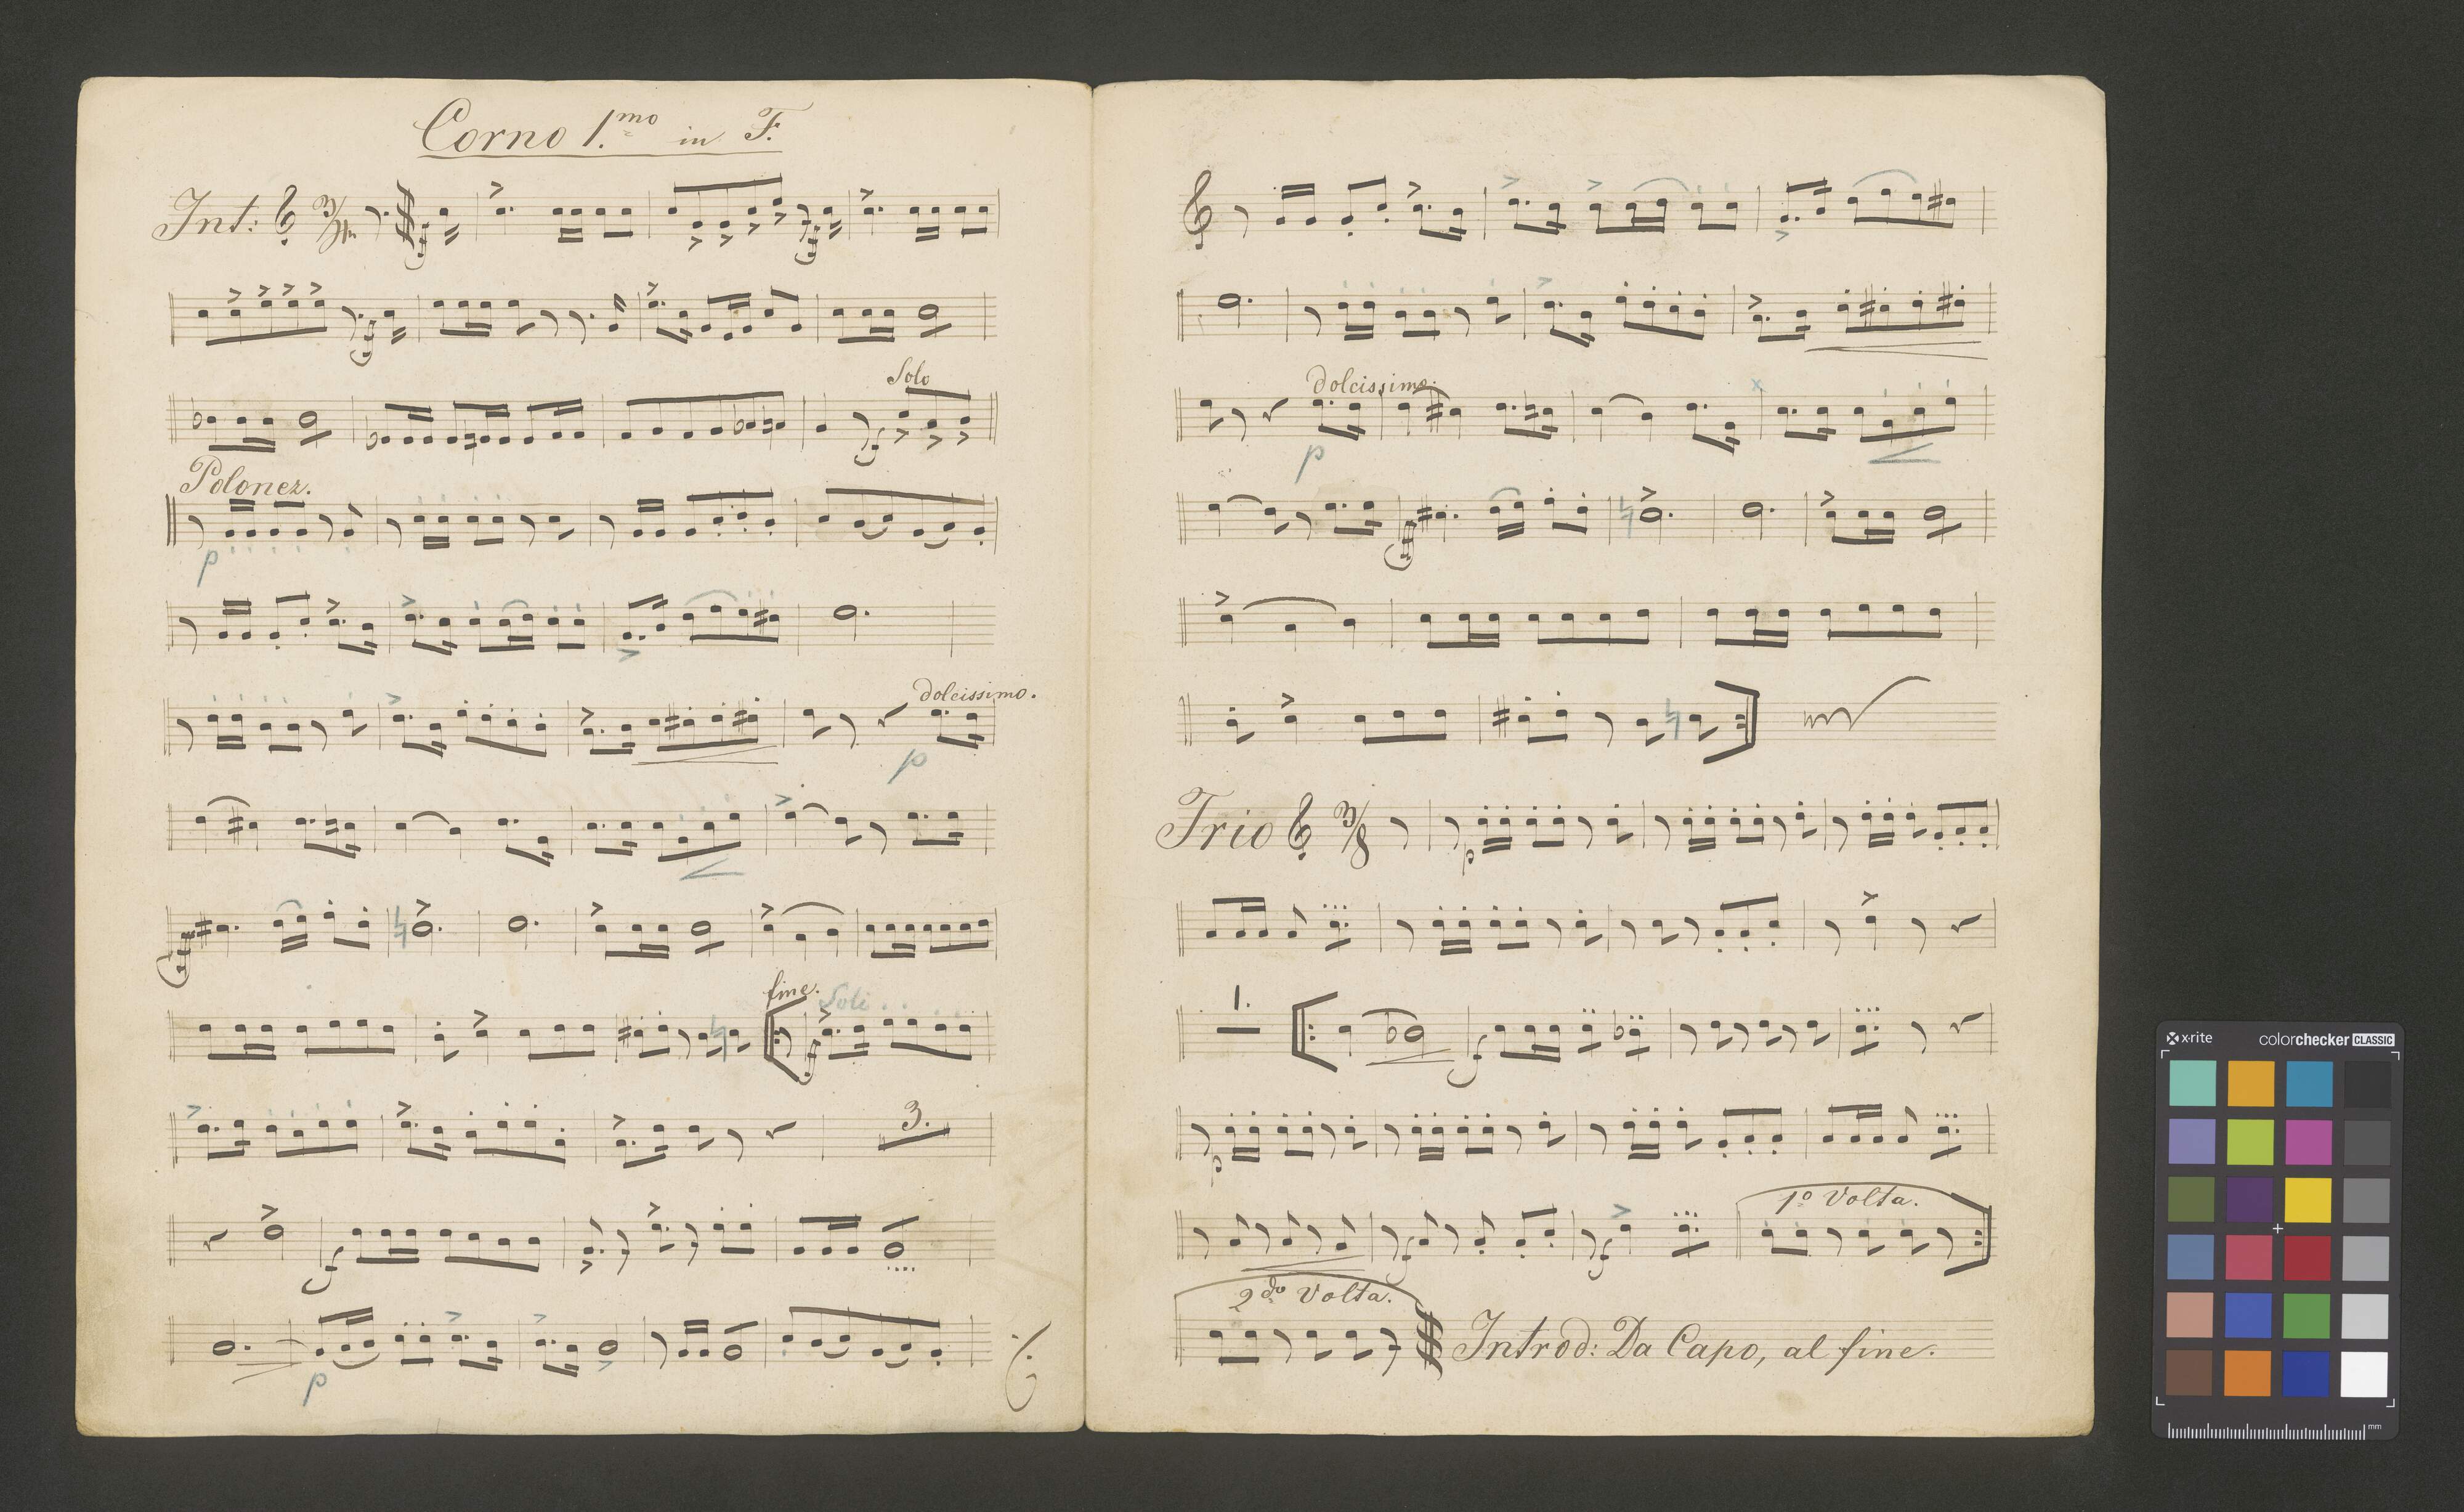 Corno 1.mo in F.
Int: 3/4
Solo
Polonez.
p
dolcissimo.
p
fine. Soli
3.
f
p
dolcissimo.
p
x
Trio 3/8
p
1.
f
p
1o Volta.
f f
2do Volta.
Introd: Da Capo, al fine.
x-rite colorchecker CLASSIC
mm